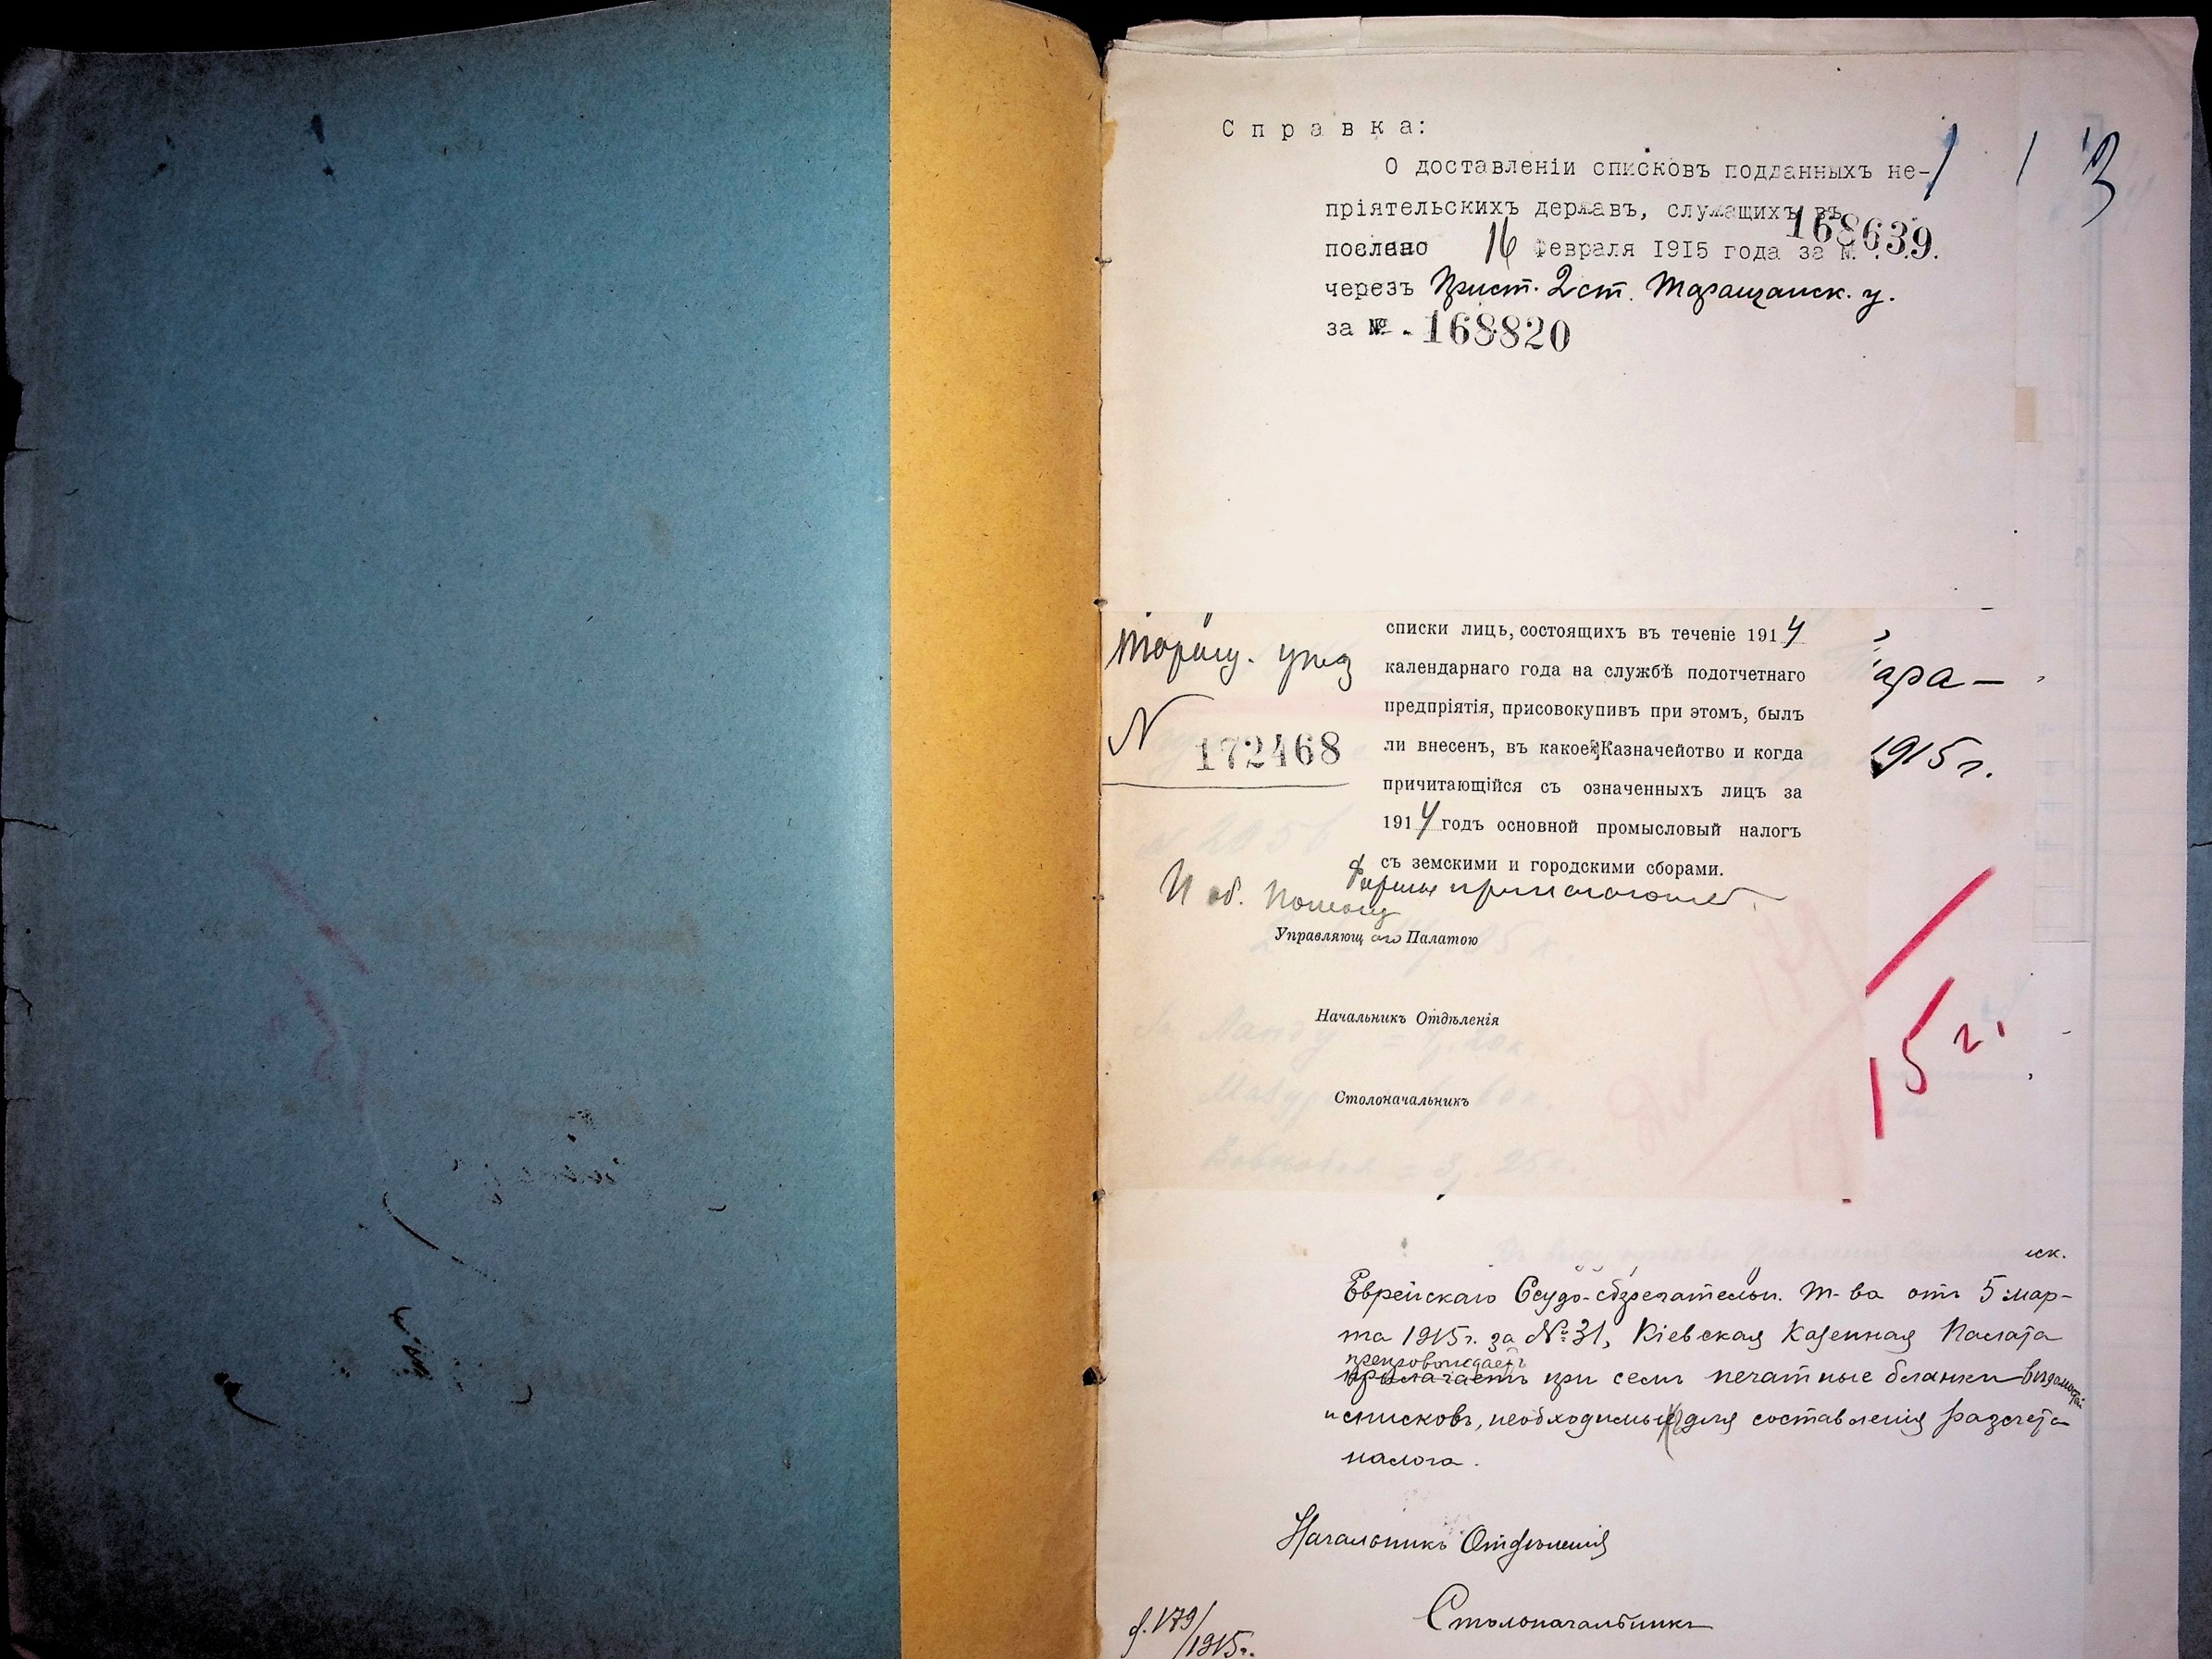 1 1 3
Справка:
О доставленіи списковъ подданныхъ не-
пріятельскихъ державъ, служащихъ въ
послано 16 февраля 1915 года за № 168639.
черезъ Прист. 2 ст. Таращанск. у.
за № 168820
списки лицъ, состоящихъ въ теченіе 1914
календарнаго года на службѣ подотчетнаго
предпріятія, присовокупивъ при этомъ, былъ
ли внесенъ, въ какое Казначейство и когда
причитающійся съ означенныхъ лицъ за
1914 годъ основной промысловый налогъ
съ земскими и городскими сборами.
N 172468
ара-
1915 г.
И об. Помощ
Управляющ аго Палатою
Начальникъ Отдѣленія
Столоначальникъ
15 г.
ск.
Еврейскаго Ссудо-сберегательн. Т-ва отъ 5 мар-
та 1915 г. за № 31, Кіевская Казенная Палата
препровождаетъ
прилагаетъ при семъ печатные бланки вѣдомостей
и списковъ, необходимые для составленія разсчета
налога.
Начальникъ Отдѣленія
Столоначальникъ
д. 179/1915 г.